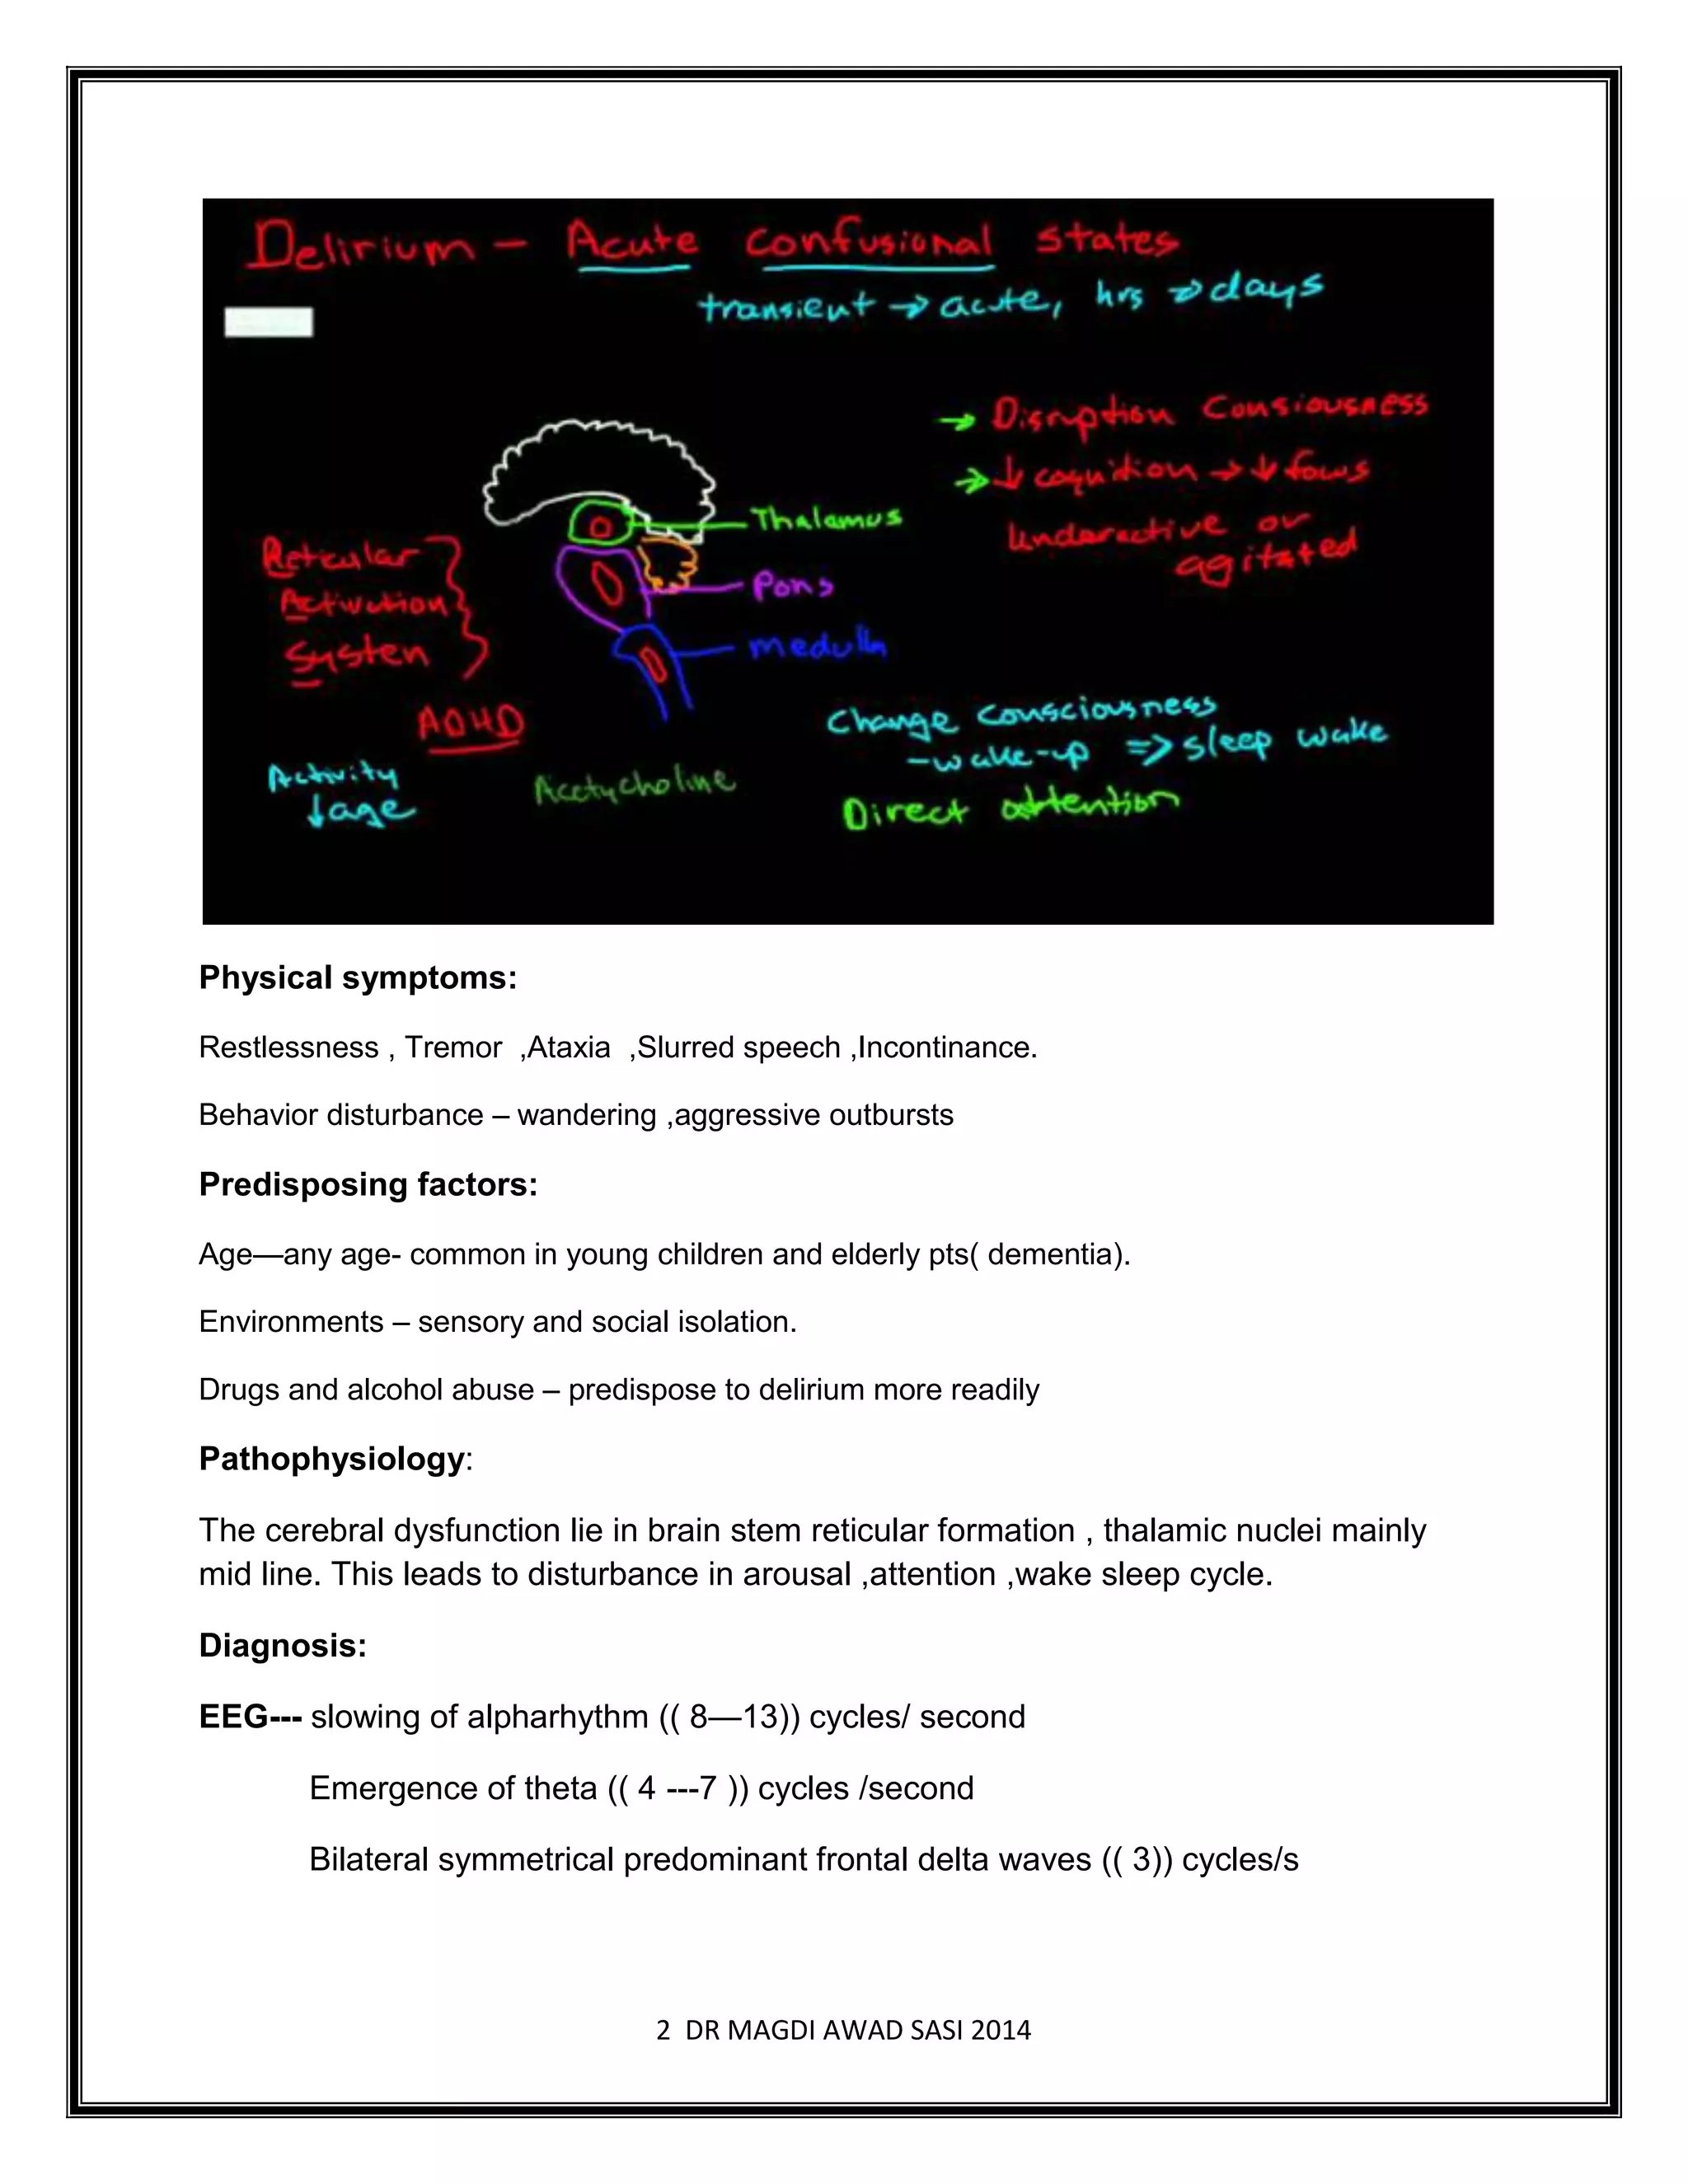 Delirium - Acute confusional states
transient → acute, hrs → days
→ Disruption Consiousness
→ ↓ cognition → ↓ focus
Underactive or
agitated
Thalamus
Reticular
Activation
System
Pons
medulla
ADHD
Change consciousness
- wake-up => sleep wake
Activity
↓ age
Acetycholine
Direct attention
Physical symptoms:
Restlessness , Tremor ,Ataxia ,Slurred speech ,Incontinance.
Behavior disturbance – wandering ,aggressive outbursts
Predisposing factors:
Age—any age- common in young children and elderly pts( dementia).
Environments – sensory and social isolation.
Drugs and alcohol abuse – predispose to delirium more readily
Pathophysiology:
The cerebral dysfunction lie in brain stem reticular formation , thalamic nuclei mainly
mid line. This leads to disturbance in arousal ,attention ,wake sleep cycle.
Diagnosis:
EEG--- slowing of alpharhythm (( 8—13)) cycles/ second
Emergence of theta (( 4 ---7 )) cycles /second
Bilateral symmetrical predominant frontal delta waves (( 3)) cycles/s
2 DR MAGDI AWAD SASI 2014